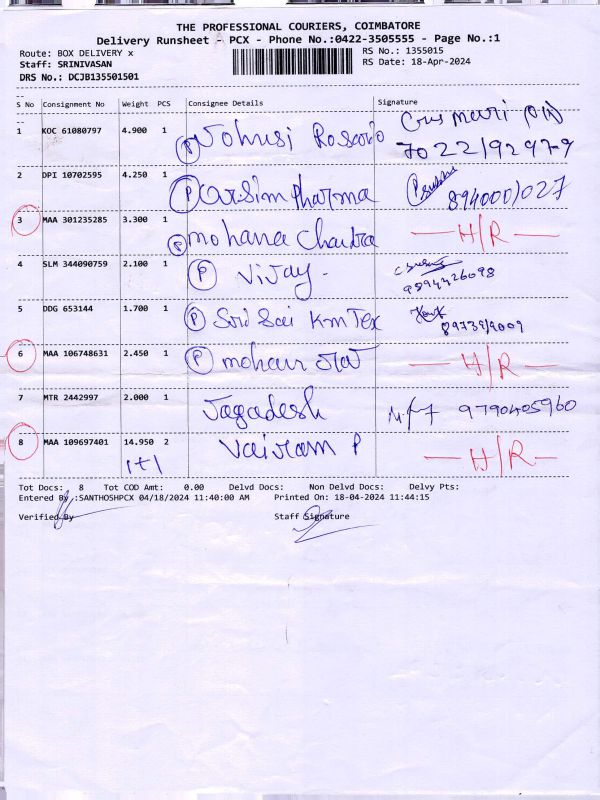 THE PROFESSIONAL COURIERS, COIMBATORE
Delivery Runsheet - PCX - Phone No.:0422-3505555 - Page No.:1
Route: BOX DELIVERY x
RS No.: 1355015
Staff: SRINIVASAN
RS Date: 18-Apr-2024
DRS No.: DCJB135501501
S No Consignment No Weight PCS Consignee Details Signature
1 KOC 61080797 4.900 1 P Rosario
2 DPI 10702595 4.250 1 P arsim Pharma
3 MAA 301235285 3.300 1 P mohana Chandra H/R
4 SLM 344090759 2.100 1 P Vijay
5 DDG 653144 1.700 1 P Sri Sai Km Tex
6 MAA 106748631 2.450 1 P H/R
7 MTR 2442997 2.000 1 Jagadesh 9790405960
8 MAA 109697401 14.950 2 Vairam P H/R
1+1
Tot Docs: 8 Tot COD Amt: 0.00 Delvd Docs: Non Delvd Docs: Delvy Pts:
Entered By :SANTHOSHPCX 04/18/2024 11:40:00 AM Printed On: 18-04-2024 11:44:15
Verified By Staff Signature